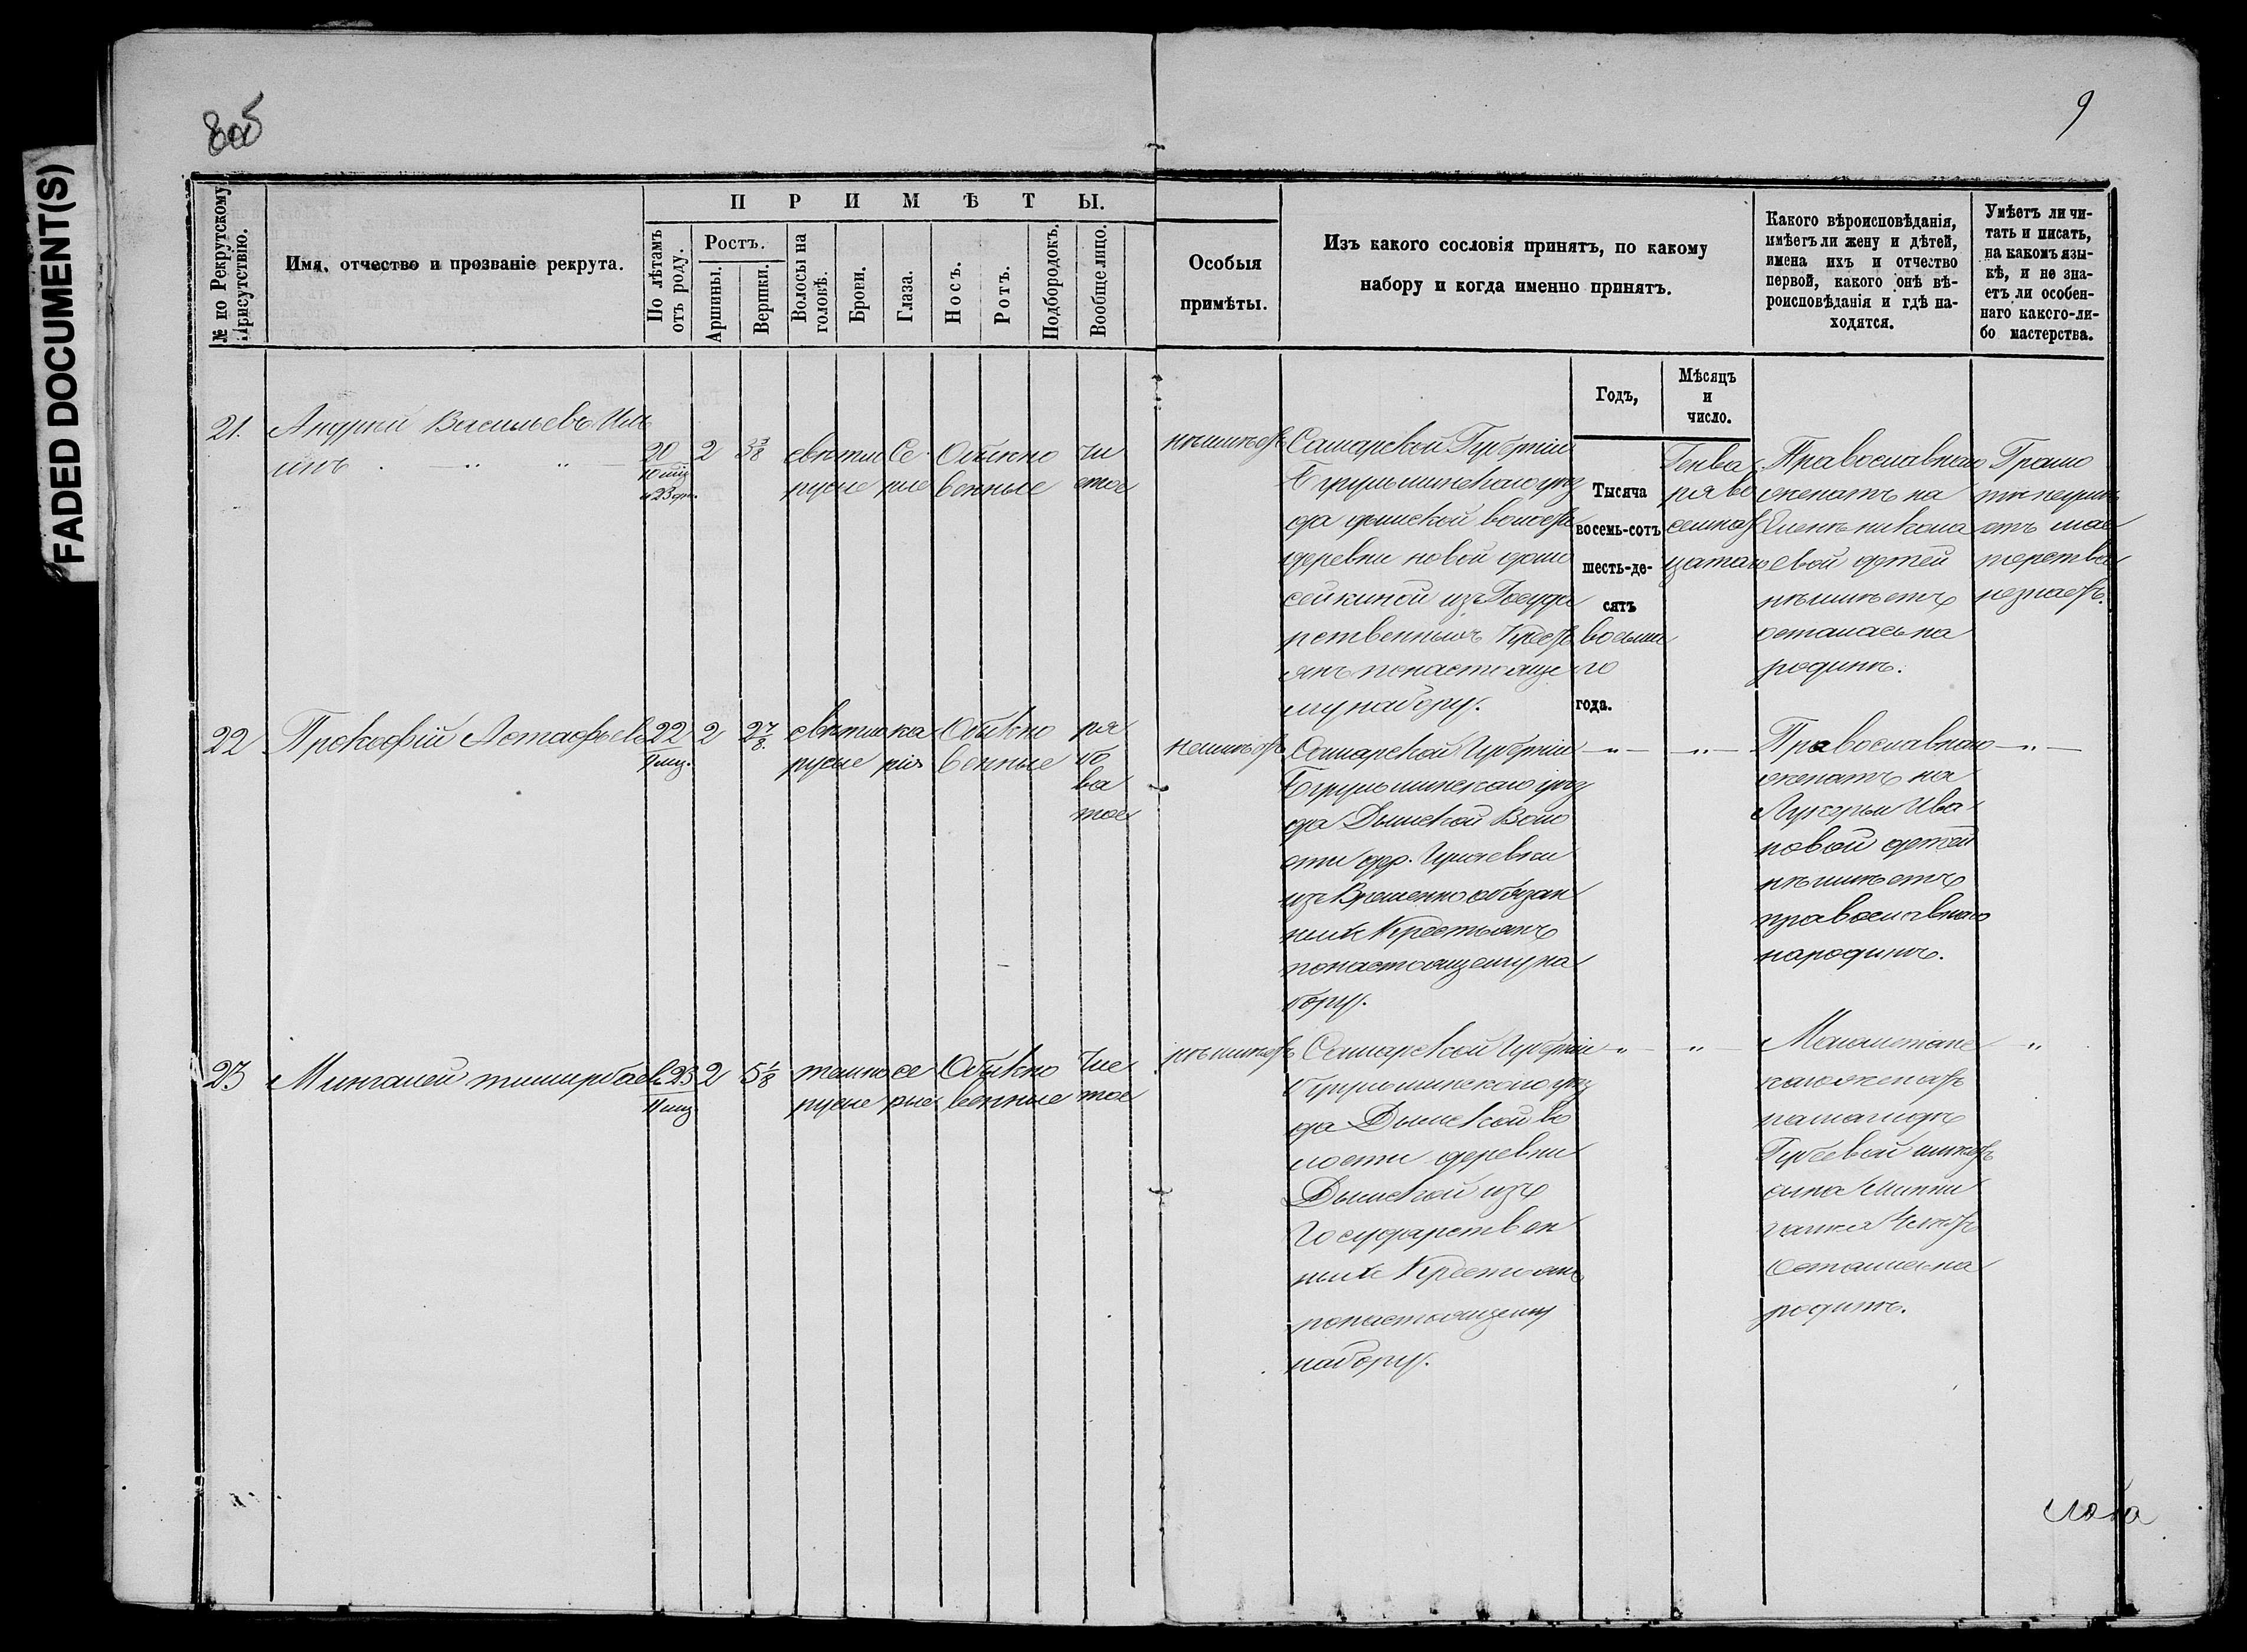 FADED DOCUMENT(S)
8об
9
№ по Рекрутскому Присутствію.
Имя, отчество и прозваніе рекрута.
ПРИМѢТЫ.
По лѣтамъ отъ роду.
Ростъ.
Аршины.
Вершки.
Волосы на головѣ.
Брови.
Глаза.
Носъ.
Ротъ.
Подбородокъ.
Вообще лицо.
Особыя
примѣты.
Изъ какого сословія принятъ, по какому
набору и когда именно принятъ.
Какого вѣроисповѣданія,
имѣетъ ли жену и дѣтей,
имена ихъ и отчество
первой, какого онѣ вѣ-
роисповѣданія и гдѣ на-
ходятся.
Умѣетъ ли чи-
тать и писать,
на какомъ язы-
кѣ, и не зна-
етъ ли особен-
наго какого-ли-
бо мастерства.
Годъ,
Мѣсяцъ
и
число.
21.
Андрей Васильевъ Иль
инъ
20
10 мѣс
и 23 дн.
2
3 3/8
свѣтло
русые
Се
рые
Обыкно
венные
чи
стое
неимѣетъ
Самарской Губерніи
Бугульминскаго уѣз
да дымской волости
деревни новой
сейкиной изъ Госуда
рственныхъ Крест
янъ понастояще
му набору.
Тысяча
восемь-сотъ
шесть-де-
сятъ
восьма
го
года.
Генва
ря во
семнад
цатаго
Православнаго
женатъ на
Еленѣ никола
евой дѣтей
неимѣетъ
осталась на
родинѣ.
Грамо
тѣ неумѣ
етъ мас
терства
незнаетъ.
22
Прокофій Астафьевъ
22
2
2 7/8.
свѣтло
русые
ка
ріе
Обыкно
венные
ря
бо
ва
тое
неимѣетъ
Самарской Губерніи
Бугульминскаго уѣз
да Дымской Воло
сти дер.
изъ Временнообязан
ныхъ Крестьянъ
понастоящему на
бору.
- " -
- " -
Православнаго
женатъ на
Лукерьи Ива
новой дѣтей
неимѣетъ
православнаго
народинѣ.
- " -
23
Мингалей тимирбаевъ
23
2
5 1/8
темно
русые
се
рые
Обыкно
венные
Чис
тое
неимѣетъ
Самарской Губерніи
Бугульминскаго уѣз
да Дымской во
лости деревни
Дымской изъ
Государствен
ныхъ Крестьянъ
понастоящему
набору.
"
"
Магометанс
каго женатъ
Губеевой имѣетъ
сына
Остались на
родинѣ.
"